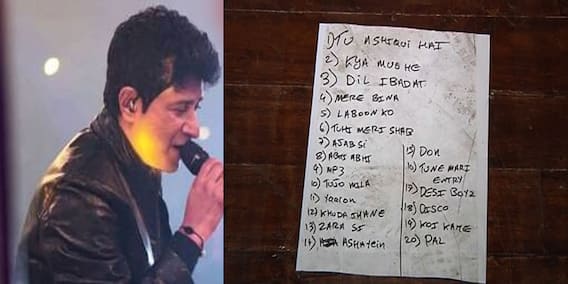 1) TU ASHIQUI HAI
2) KYA MUGHE
3) DIL IBADAT
4) MERE BINA
5) LABOON KO
6) TUHI MERI SHAB
7) AJAB SI
8) ABHI ABHI
9) MP3
10) TUJO MILA
11) YAARON
12) KHUDA JHANE
13) ZARA SS
14) ASHAYEIN
15) DON
16) TUNE MARI
ENTRY
17) DESI BOYZ
18) DISCO
19) KOI KAHE
20) PAL